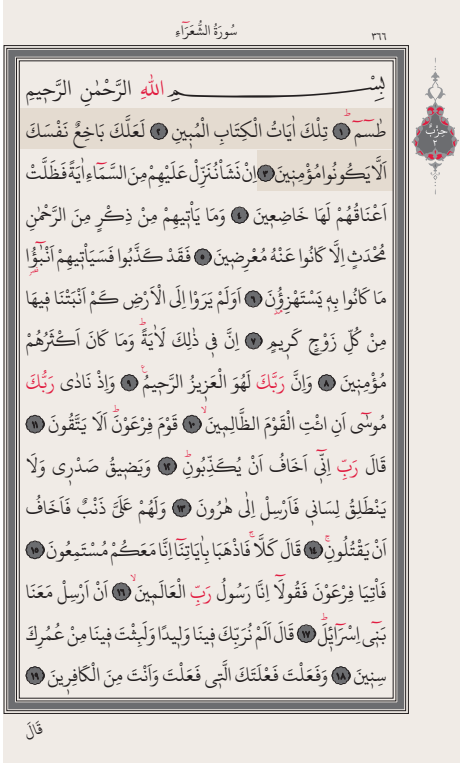 سُورَةُ الشُّعَرَٓاءِ
٣٦٦
بِسْمِ اللّٰهِ الرَّحْمٰنِ الرَّحٖيمِ
طٰسٓمٓۜ ﴿١﴾ تِلْكَ اٰيَاتُ الْكِتَابِ الْمُبٖينِ ﴿٢﴾ لَعَلَّكَ بَاخِعٌ نَفْسَكَ
اَلَّا يَكُونُوا مُؤْمِنٖينَ ﴿٣﴾ اِنْ نَشَأْ نُنَزِّلْ عَلَيْهِمْ مِنَ السَّمَٓاءِ اٰيَةً فَظَلَّتْ
اَعْنَاقُهُمْ لَهَا خَاضِعٖينَ ﴿٤﴾ وَمَا يَأْتٖيهِمْ مِنْ ذِكْرٍ مِنَ الرَّحْمٰنِ
مُحْدَثٍ اِلَّا كَانُوا عَنْهُ مُعْرِضٖينَ ﴿٥﴾ فَقَدْ كَذَّبُوا فَسَيَأْتٖيهِمْ اَنْبٰٓؤُ۬ا
مَا كَانُوا بِهٖ يَسْتَهْزِؤُ۫نَ ﴿٦﴾ اَوَلَمْ يَرَوْا اِلَى الْاَرْضِ كَمْ اَنْبَتْنَا فٖيهَا
مِنْ كُلِّ زَوْجٍ كَرٖيمٍ ﴿٧﴾ اِنَّ فٖي ذٰلِكَ لَاٰيَةًۜ وَمَا كَانَ اَكْثَرُهُمْ
مُؤْمِنٖينَ ﴿٨﴾ وَاِنَّ رَبَّكَ لَهُوَ الْعَزٖيزُ الرَّحٖيمُ۟ ﴿٩﴾ وَاِذْ نَادٰى رَبُّكَ
مُوسٰٓى اَنِ ائْتِ الْقَوْمَ الظَّالِمٖينَۙ ﴿١٠﴾ قَوْمَ فِرْعَوْنَۜ اَلَا يَتَّقُونَ ﴿١١﴾
قَالَ رَبِّ اِنّٖٓي اَخَافُ اَنْ يُكَذِّبُونِۜ ﴿١٢﴾ وَيَضٖيقُ صَدْرٖي وَلَا
يَنْطَلِقُ لِسَانٖي فَاَرْسِلْ اِلٰى هٰرُونَ ﴿١٣﴾ وَلَهُمْ عَلَيَّ ذَنْبٌ فَاَخَافُ
اَنْ يَقْتُلُونِۚ ﴿١٤﴾ قَالَ كَلَّاۚ فَاذْهَبَا بِاٰيَاتِنَٓا اِنَّا مَعَكُمْ مُسْتَمِعُونَ ﴿١٥﴾
فَأْتِيَا فِرْعَوْنَ فَقُولَٓا اِنَّا رَسُولُ رَبِّ الْعَالَمٖينَۙ ﴿١٦﴾ اَنْ اَرْسِلْ مَعَنَا
بَنٖٓي اِسْرَٓائٖلَۜ ﴿١٧﴾ قَالَ اَلَمْ نُرَبِّكَ فٖينَا وَلٖيدًا وَلَبِثْتَ فٖينَا مِنْ عُمُرِكَ
سِنٖينَ ﴿١٨﴾ وَفَعَلْتَ فَعْلَتَكَ الَّتٖي فَعَلْتَ وَاَنْتَ مِنَ الْكَافِرٖينَ ﴿١٩﴾
قَالَ
حِزْب
٢